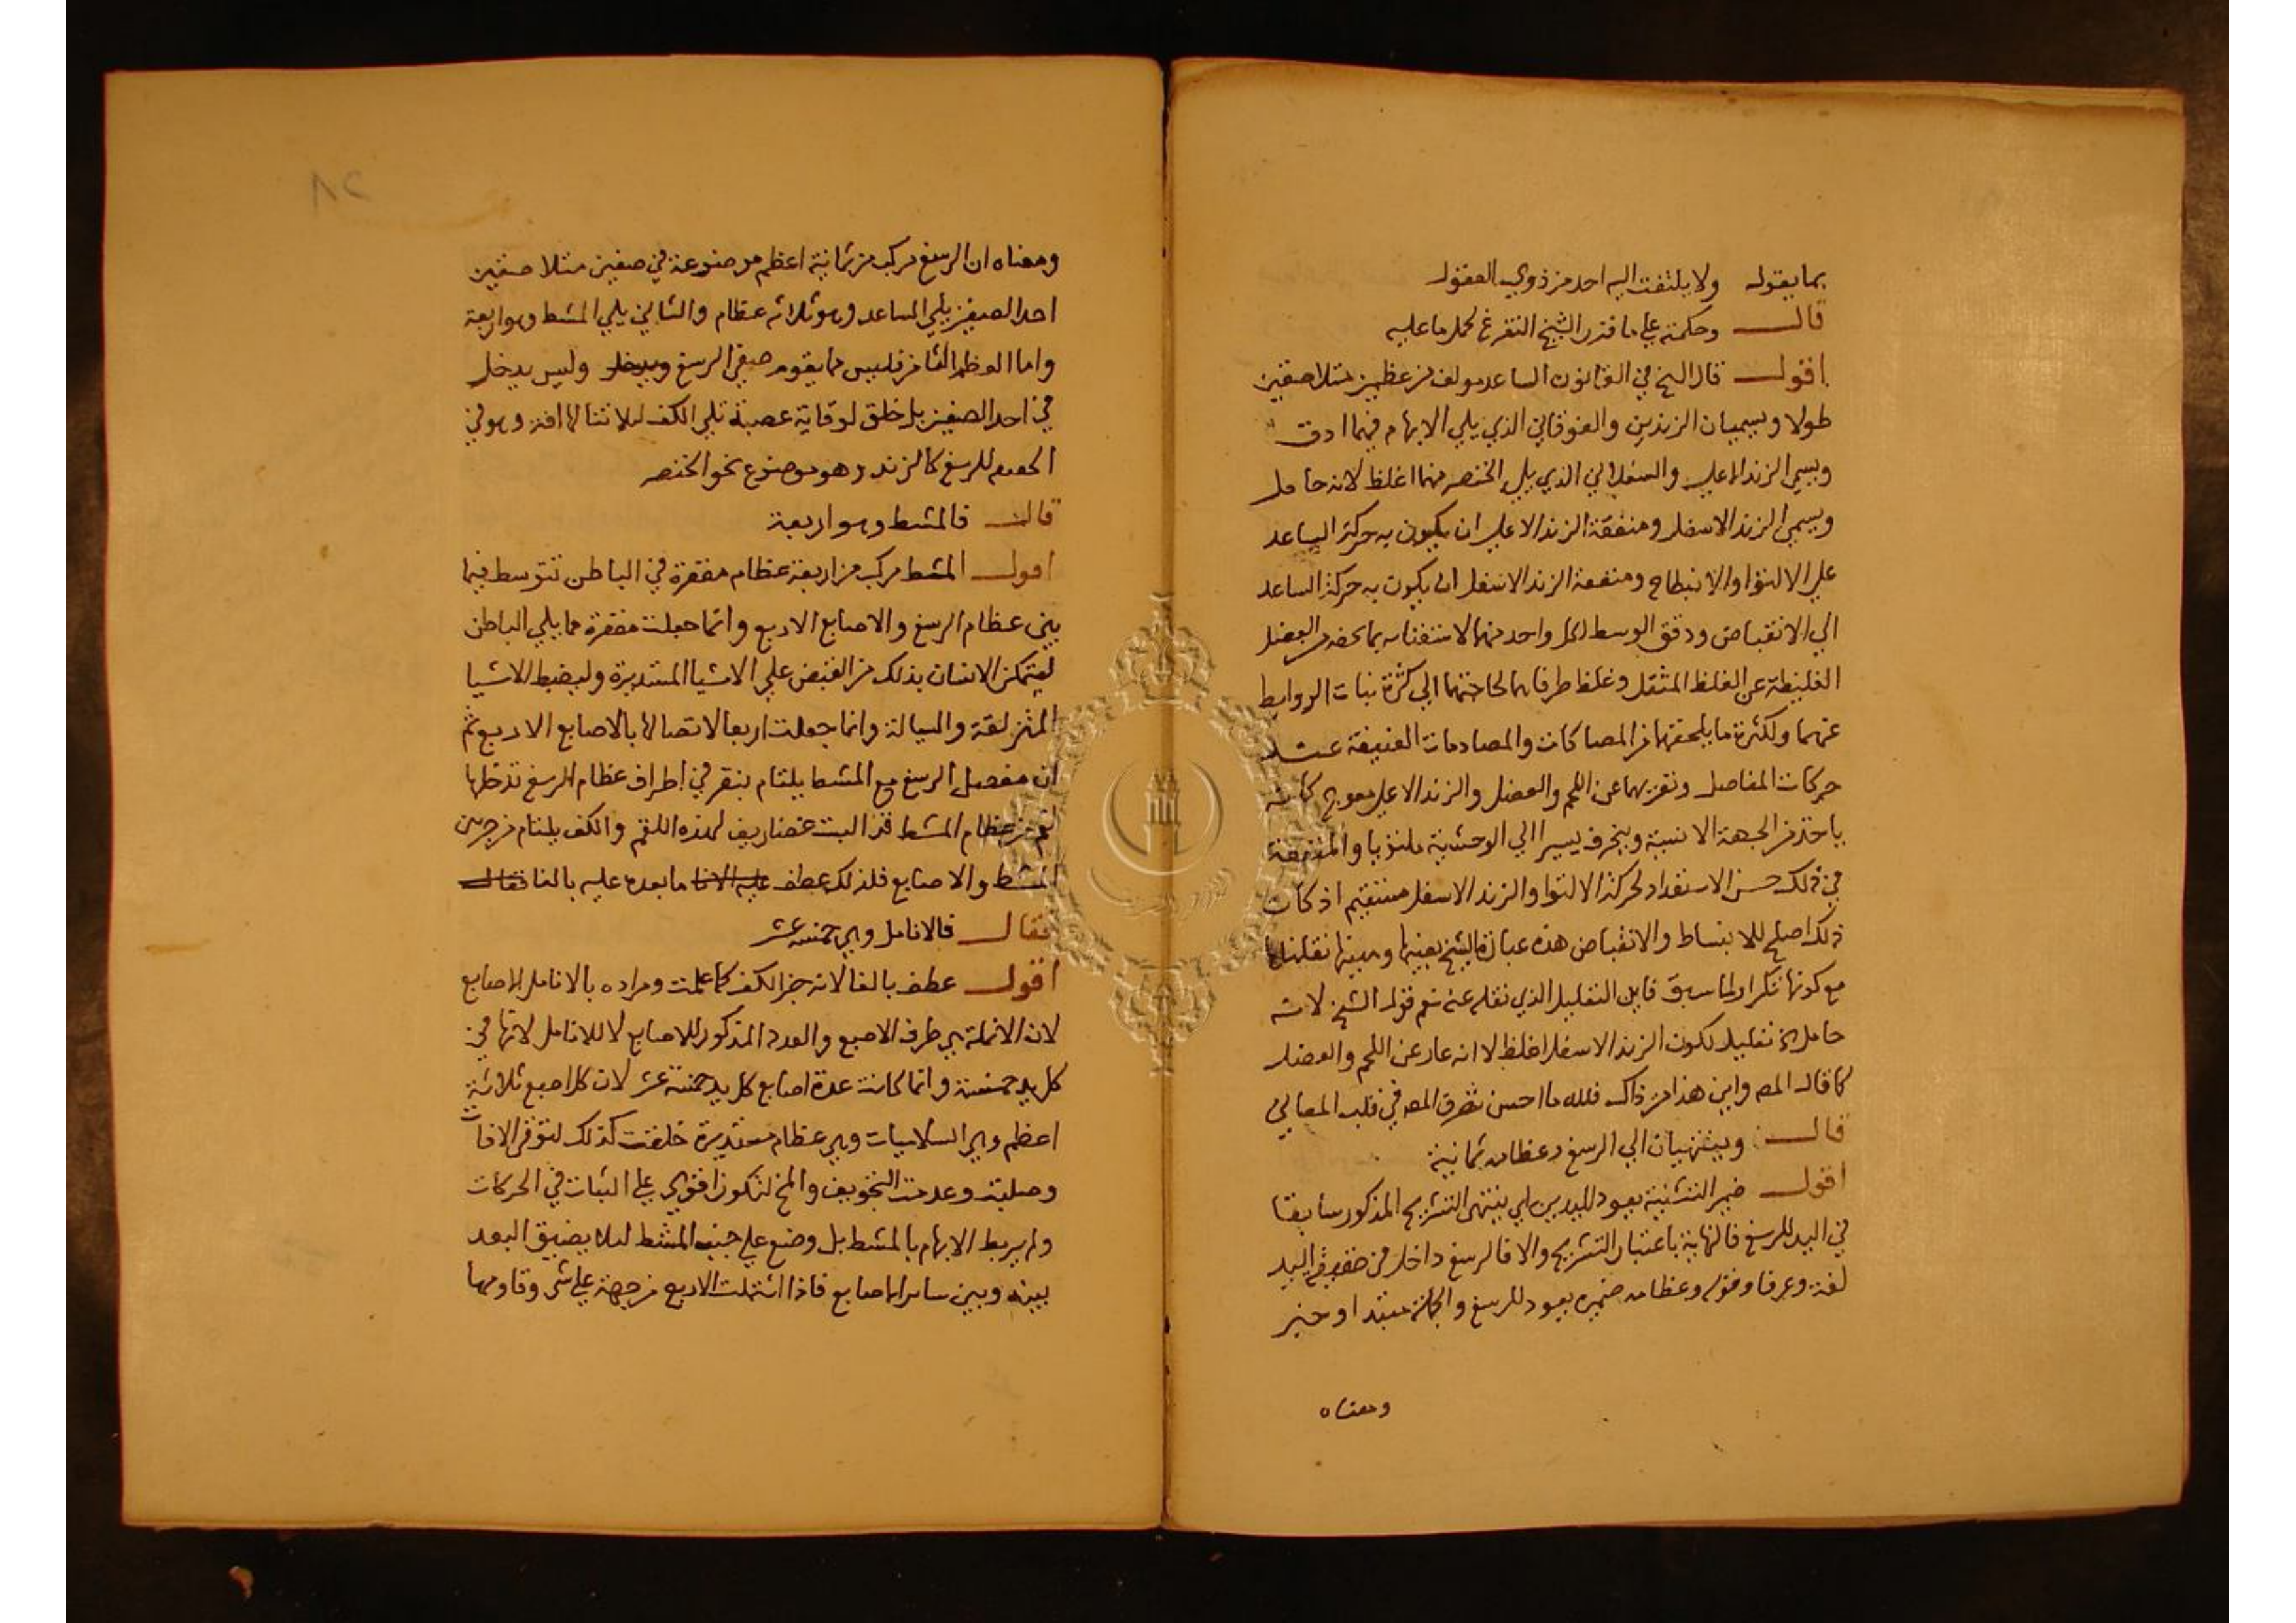 بما يقوله ولا يلتفت اليه احد من ذوي العقول
قال وحكمته على ما قدر الشيخ التفرغ لحمل ما عليه
اقول قال الشيخ في القانون الساعد مولف من عظمين متلاصقين
طولا ويسميان الزندين والفوقاني الذي يلي الابهام فيهما ادق
ويسمى الزند الاعلى والسفلاني الذي يلي الخنصر منهما اغلظ لانه حامل
ويسمى الزند الاسفل ومنفعة الزند الاعلى ان يكون به حركة الساعد
على الالتوا والانبطاح ومنفعة الزند الاسفل ان يكون به حركة الساعد
الى الانقباض ودقق الوسط لكل واحد منهما لاستغنائه بما يحفه من العضل
الغليظة عن الغلظ المثقل وغلظ طرفاهما لحاجتهما الى كثرة نبات الروابط
عنهما ولكثرة ما يلحقهما من المصاكات والمصادمات العنيفة عند
حركات المفاصل وتعريهما عن اللحم والعضل والزند الاعلى معوج كانه
ياخذ من الجهة الانسية وينحرف يسيرا الي الوحشية ملتويا والمنفعة
في ذلك حسن الاستعداد لحركة الالتوا والزند الاسفل مستقيم اذ كان
ذلك اصلح للانبساط والانقباض هذه عبارة الشيخ بعينها نقلناها
مع كونها تكرار لما سبق فاين التعليل الذي نقله عنه نعم قول الشيخ لانه
حامل تعليل لكون الزند الاسفل اغلظ لا انه عار عن اللحم والعضل
كما قال المص واين هذا من ذاك فلله ما احسن تصرف المص في قلب المعاني
قال وينتهيان الي الرسغ وعظامه ثمانية
اقول ضمير التثنية يعود لليدين اي ينتهي التشريح المذكور سابقا
في اليد للرسغ فالنهاية باعتبار التشريح والا فالرسغ داخل في اليد
لغة وعرفا وقوله وعظامه ضميره يعود للرسغ والجملة مبتدا وخبر
ومعناه
٨٢
ومعناه ان الرسغ مركب من ثمانية اعظم موضوعة في صفين متلاصقين
احد الصفين يلي الساعد وهو ثلاثه عظام والثاني يلي المشط وهو اربعة
واما العظم الثامن فليس مما يقوم صفي الرسغ ويدخل وليس يدخل
في احد الصفين بل خلق لوقاية عصبة تلي الكف لئلا تنالها افة وهو في
للرسغ كالزند وهو موضوع نحو الخنصر
قال فالمشط وهو اربعة
اقول المشط مركب من اربعة عظام مقعرة في الباطن تتوسط فيما
بين عظام الرسغ والاصابع الاربع وانما جعلت مقعرة مما يلي الباطن
ليتمكن الانسان بذلك من القبض على الاشيا المستديرة وليضبط الاشيا
المنزلقة والسيالة وانما جعلت اربعا لاتصالها بالاصابع الاربع ثم
ان مفصل الرسغ مع المشط يلتام بنقر في اطراف عظام الرسغ تدخلها
لقم من عظام المشط قد البست غضاريف لهذه اللقم والكف يلتام من جرمين
المشط والاصابع فلذلك عطف عليه الانا ما بعده عليه بالفا فقال
فقال فالانامل وهي خمسة عشر
اقول عطف بالفا لانه جز الكف كما علمت ومراده بالانامل الاصابع
لان الانملة هي طرف الاصبع والعدد المذكور للاصابع لا للانامل لانها في
كل يد خمسة وانما كانت عدة اصابع كل يد خمسة عشر لان كل اصبع ثلاثة
اعظم وهي السلاميات وهي عظام مستديرة خلقت كذلك لتوقى الافات
وصلبت وعدمت التجويف والمخ لتكون اقوى على الثبات في الحركات
ولم يربط الابهام بالمشط بل وضع على جنب المشط لئلا يضيق البعد
بينه وبين ساير الاصابع فاذا اشتملت الاربع من جهة على شي وقاومها